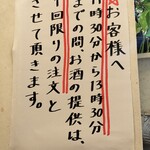 お客様へ
11時30分から13時30分
までの間、お酒の提供は、
1回限りの注文と
させて頂きます。